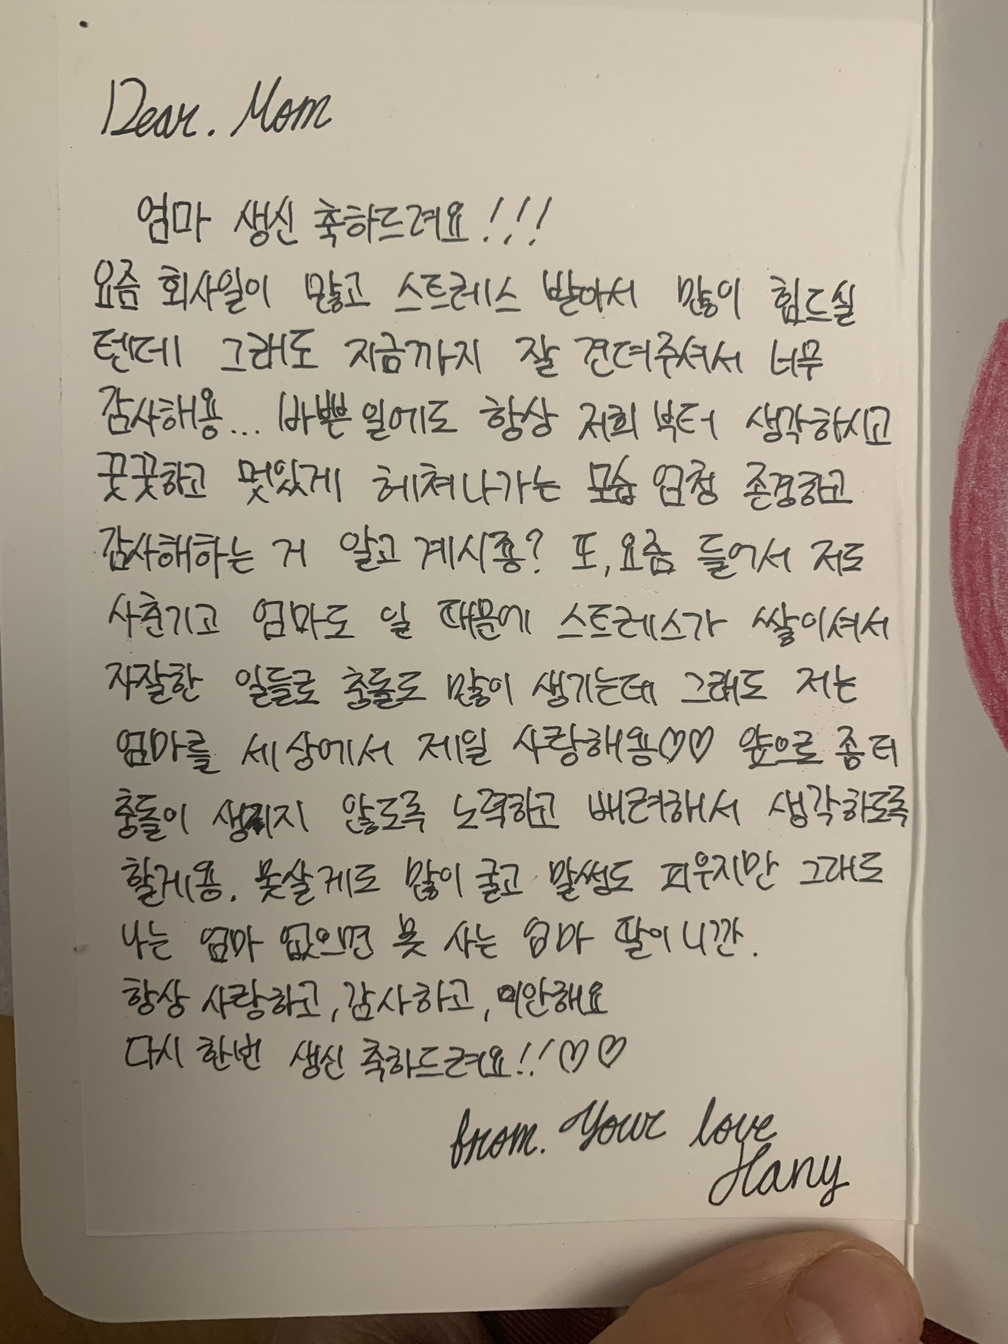 Dear. Mom
엄마 생신 축하드려요!!!
요즘 회사일이 많고 스트레스 받아서 많이 힘드실
텐데 그래도 지금까지 잘 견뎌주셔서 너무
감사해용... 바쁜 일에도 항상 저희 부터 생각하시고
꿋꿋하고 멋있게 헤쳐나가는 모습 엄청 존경하고
감사해하는 거 알고 계시죵? 또, 요즘 들어서 저도
사춘기고 엄마도 일 때문에 스트레스가 쌓이셔서
자잘한 일들로 충돌도 많이 생기는데 그래도 저는
엄마를 세상에서 제일 사랑해용♡♡ 앞으로 좀 더
충돌이 생기지 않도록 노력하고 배려해서 생각하도록
할게용. 못살게도 많이 굴고 말썽도 피우지만 그래도
나는 엄마 없으면 못 사는 엄마 딸이니깐.
항상 사랑하고, 감사하고, 미안해요
다시 한번 생신 축하드려요!!♡♡
from. Your love
Hany